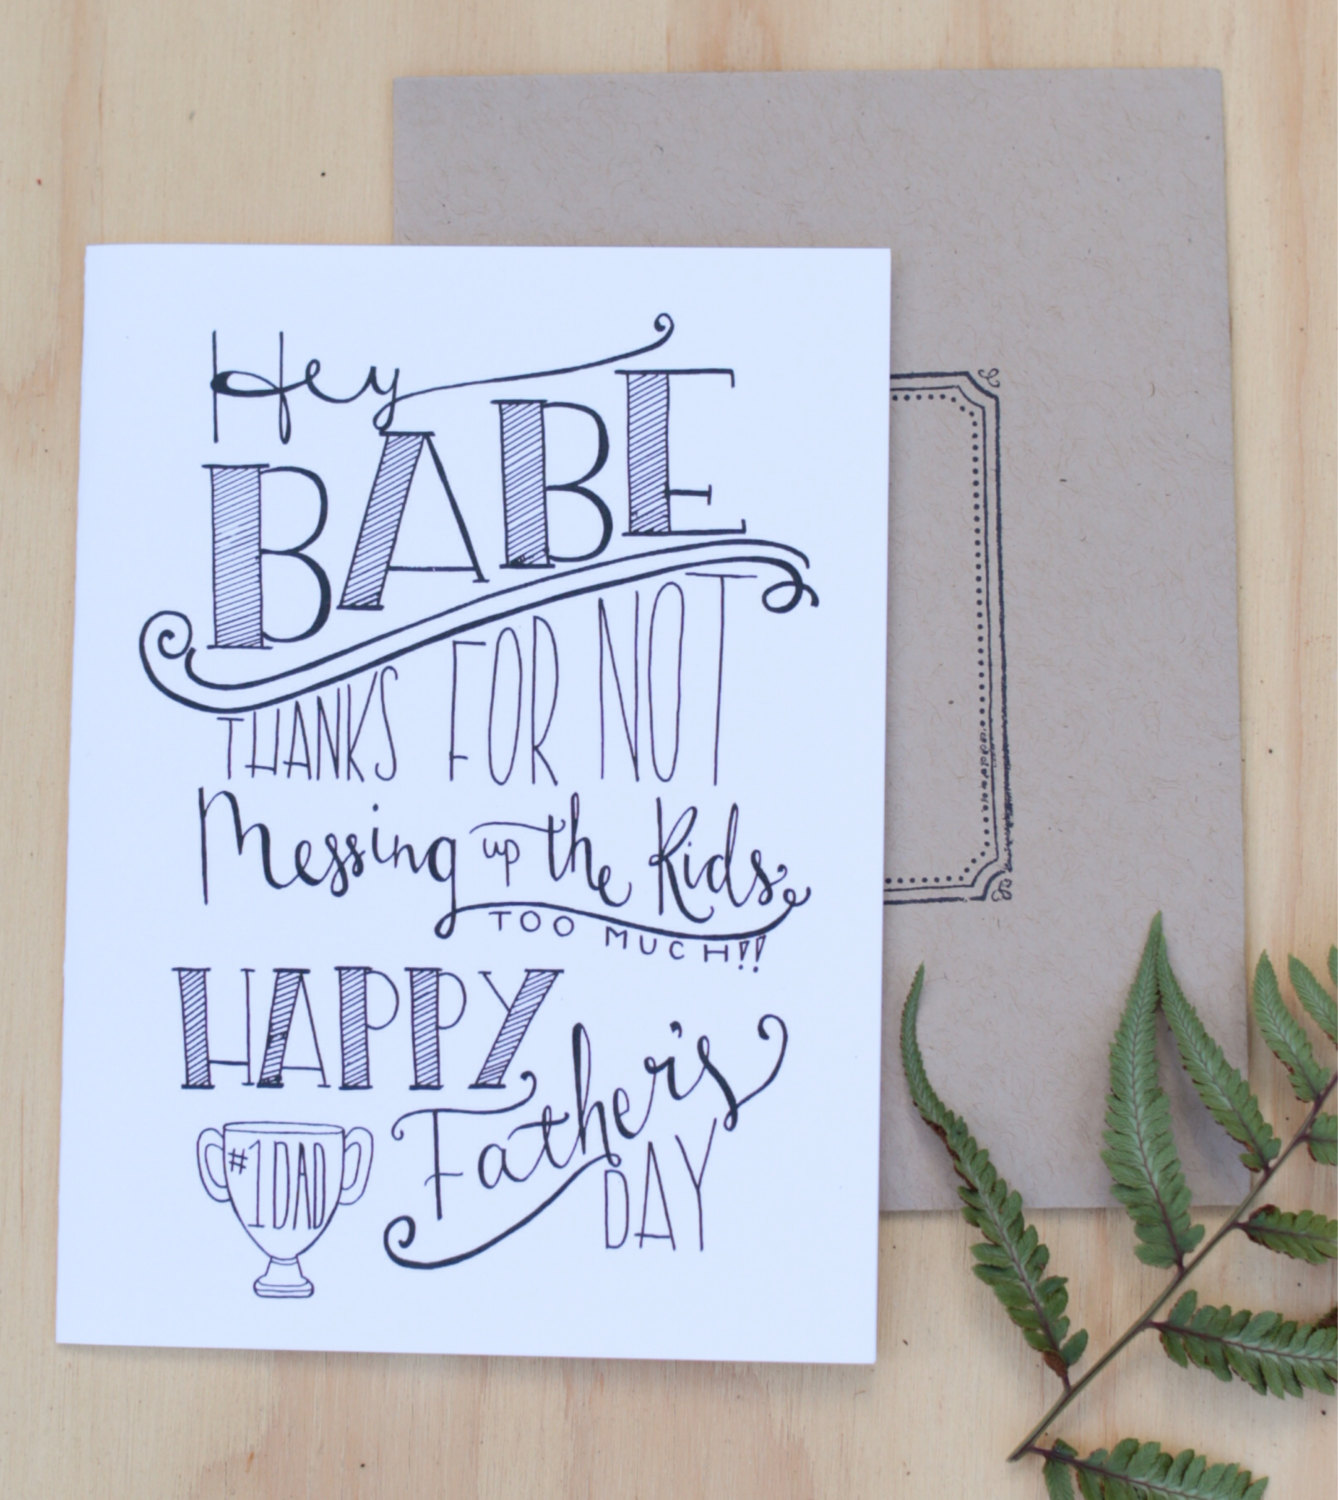 Hey
BABE
THANKS FOR NOT
Messing up the Kids
TOO MUCH!!
HAPPY
Father's
DAY
#1 DAD